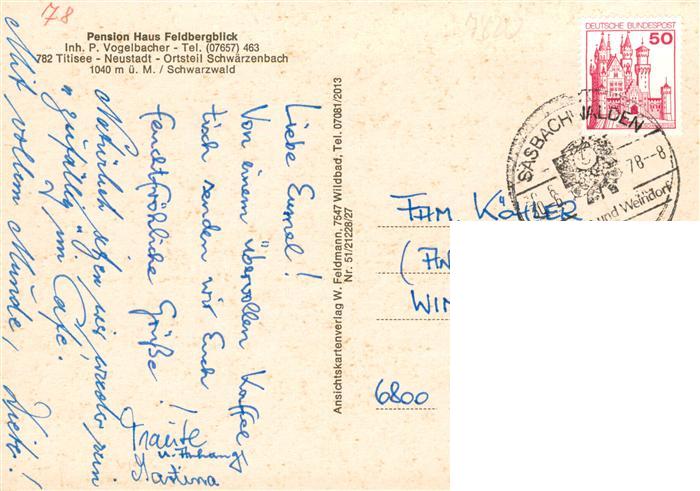 78
Pension Haus Feldbergblick
Inh. P. Vogelbacher - Tel. (07657) 463
782 Titisee - Neustadt - Ortsteil Schwärzenbach
1040 m ü. M. / Schwarzwald
Liebe Eumel!
Von einem übervollen Kaffee
tisch senden wir Euch
feuchtfröhliche Grüße!
Natürlich sitzen wir wieder rein
"zufällig" im Cafe.
Mit vollem Munde,
Traute
u. Anhang
Martina
Ansichtskartenverlag W. Feldmann, 7547 Wildbad, Tel. 07081/2013
Nr. 51/21228/27
DEUTSCHE BUNDESPOST
50
SASBACHWALDEN
78--8
und Weindorf
FAM. KÖHLER
(AN
WIN
6800